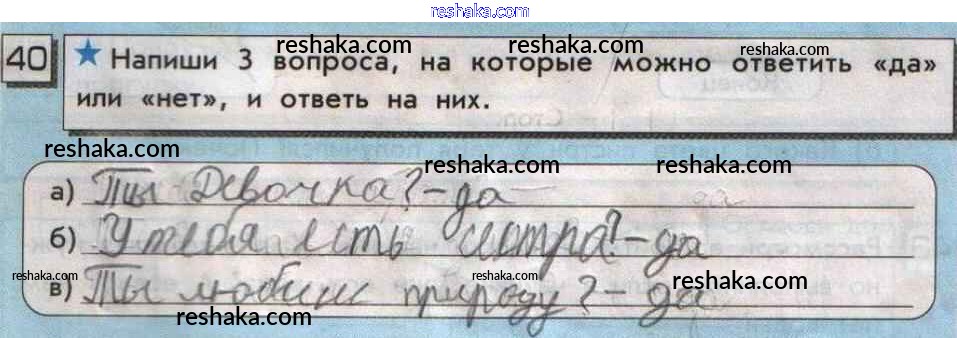 reshaka.com
40 ★ Напиши 3 вопроса, на которые можно ответить «да»
или «нет», и ответь на них.
reshaka.com reshaka.com reshaka.com
reshaka.com reshaka.com
reshaka.com reshaka.com
а) Ты девочка? – да
reshaka.com
б) У тебя есть сестра? – да
reshaka.com reshaka.com reshaka.com
в) Ты любиш природу? – да
reshaka.com reshaka.com